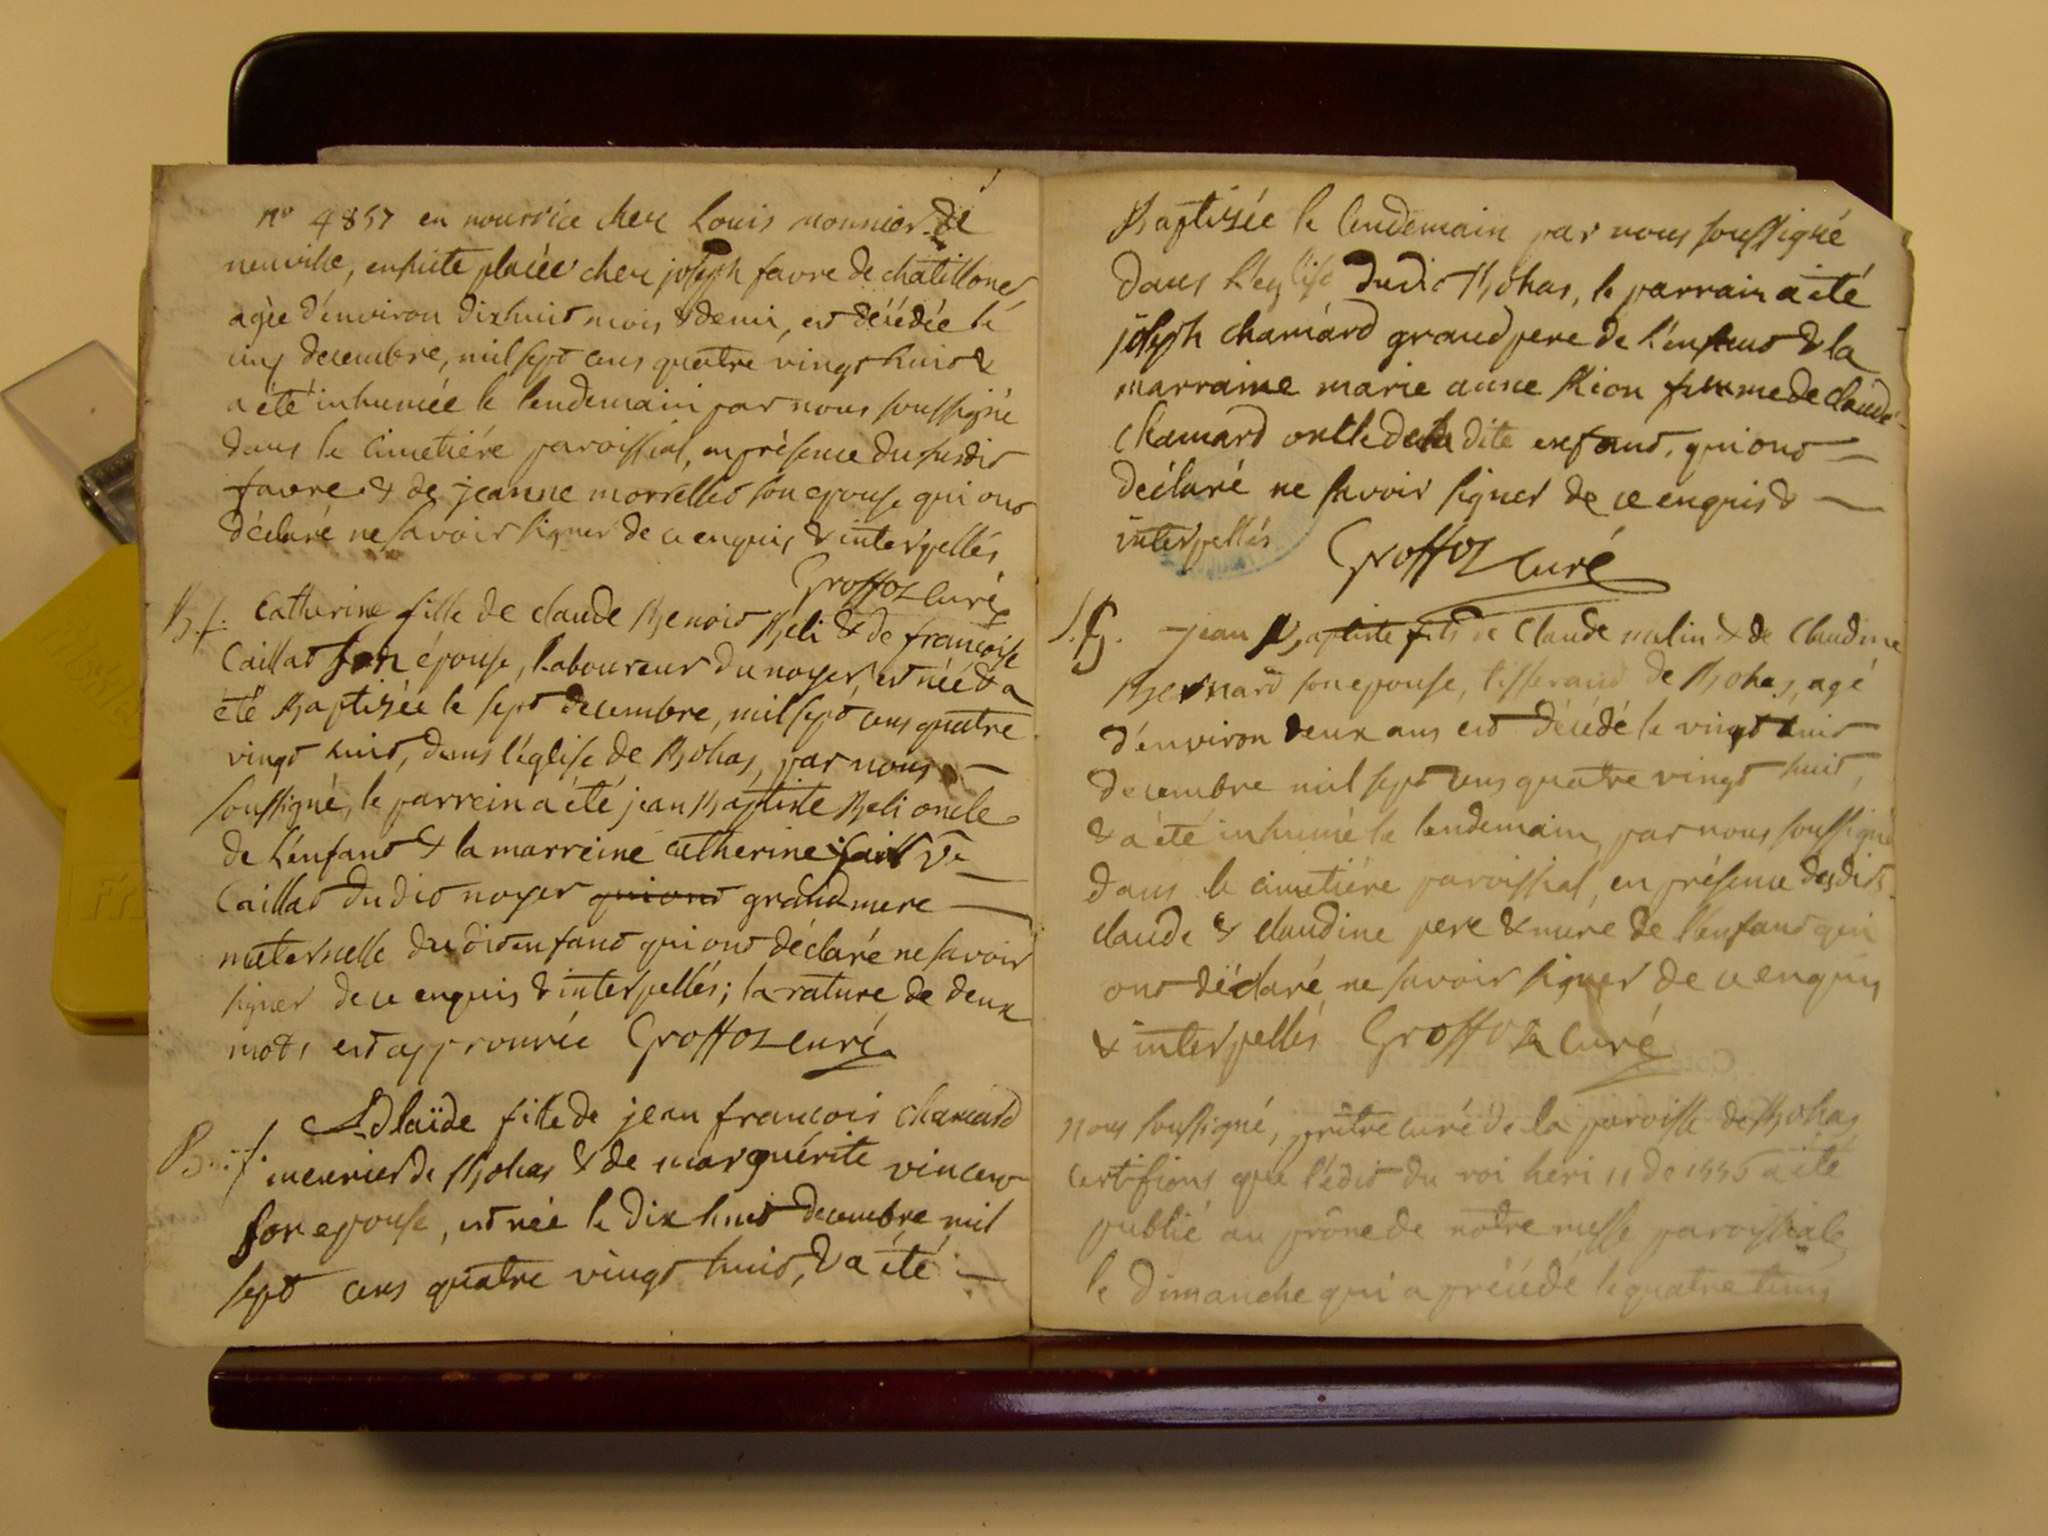 no 4857 en nourrice chez Louis monnier de
neuville, ensuite placée chez joseph favre de chatillonet
agée d'environ dixhuit mois & demi, est décédée le
cinq decembre, mil sept cens quatre vingt huit &
a été inhumée le lendemain par nous soussigné
dans le cimetiére paroissial, en présence du susdit
favre & de jeanne morrellet son epouse qui ont
déclaré ne savoir signer de ce enquis & interpellés
Groffoz curé
B. f. Catherine fille de claude Benoit Beli & de françoise
Caillat son épouse, laboureur du noyer, est née & a
été Baptisée le sept decembre, mil sept cens quatre
vingt huit, dans l'église de Bohas, par nous
soussigné, le parrein a été jean Baptiste Beli oncle
de l'enfant & la marreine catherine ve
Caillat dudit noyer qui ont grand mere
maternelle du dit enfant qui ont déclaré ne savoir
signer de ce enquis & interpellés; la rature de deux
mots est approuvée Groffoz curé
B. f. Adlaïde fille de jean francois chamard
meunier de Bohas & de marguérite vincent
son epouse, est née le dix huit decembre mil
sept cens quatre vingt huit, & a été
Baptisée le lendemain par nous soussigné
dans l'eglise dudit Bohas, le parrain a été
joseph chamard grand pere de l'enfant & la
marraine marie anne Rion femme de claude
chamard oncle de la dite enfant, qui ont
déclaré ne savoir signer de ce enquis &
interpellés Groffoz curé
S. G. jean Baptiste fils de Claude malin & de Claudine
Bernard son epouse, tisserand de Bohas, agé
d'environ deux ans est décédé le vingt huit
decembre mil sept cens quatre vingt huit,
& a été inhumé le lendemain, par nous soussigné
dans le cimetiére paroissial, en présence desdits
claude & claudine pere & mere de l'enfant qui
ont déclaré ne savoir signer de ce enquis
& interpellés Groffoz curé
Nous soussigné, prêtre curé de la paroisse de Bohas
certifions que l'édit du roi heri 11 de 1556 a été
publié au prône de notre messe paroissiale
le dimanche qui a précédé le quatre tems